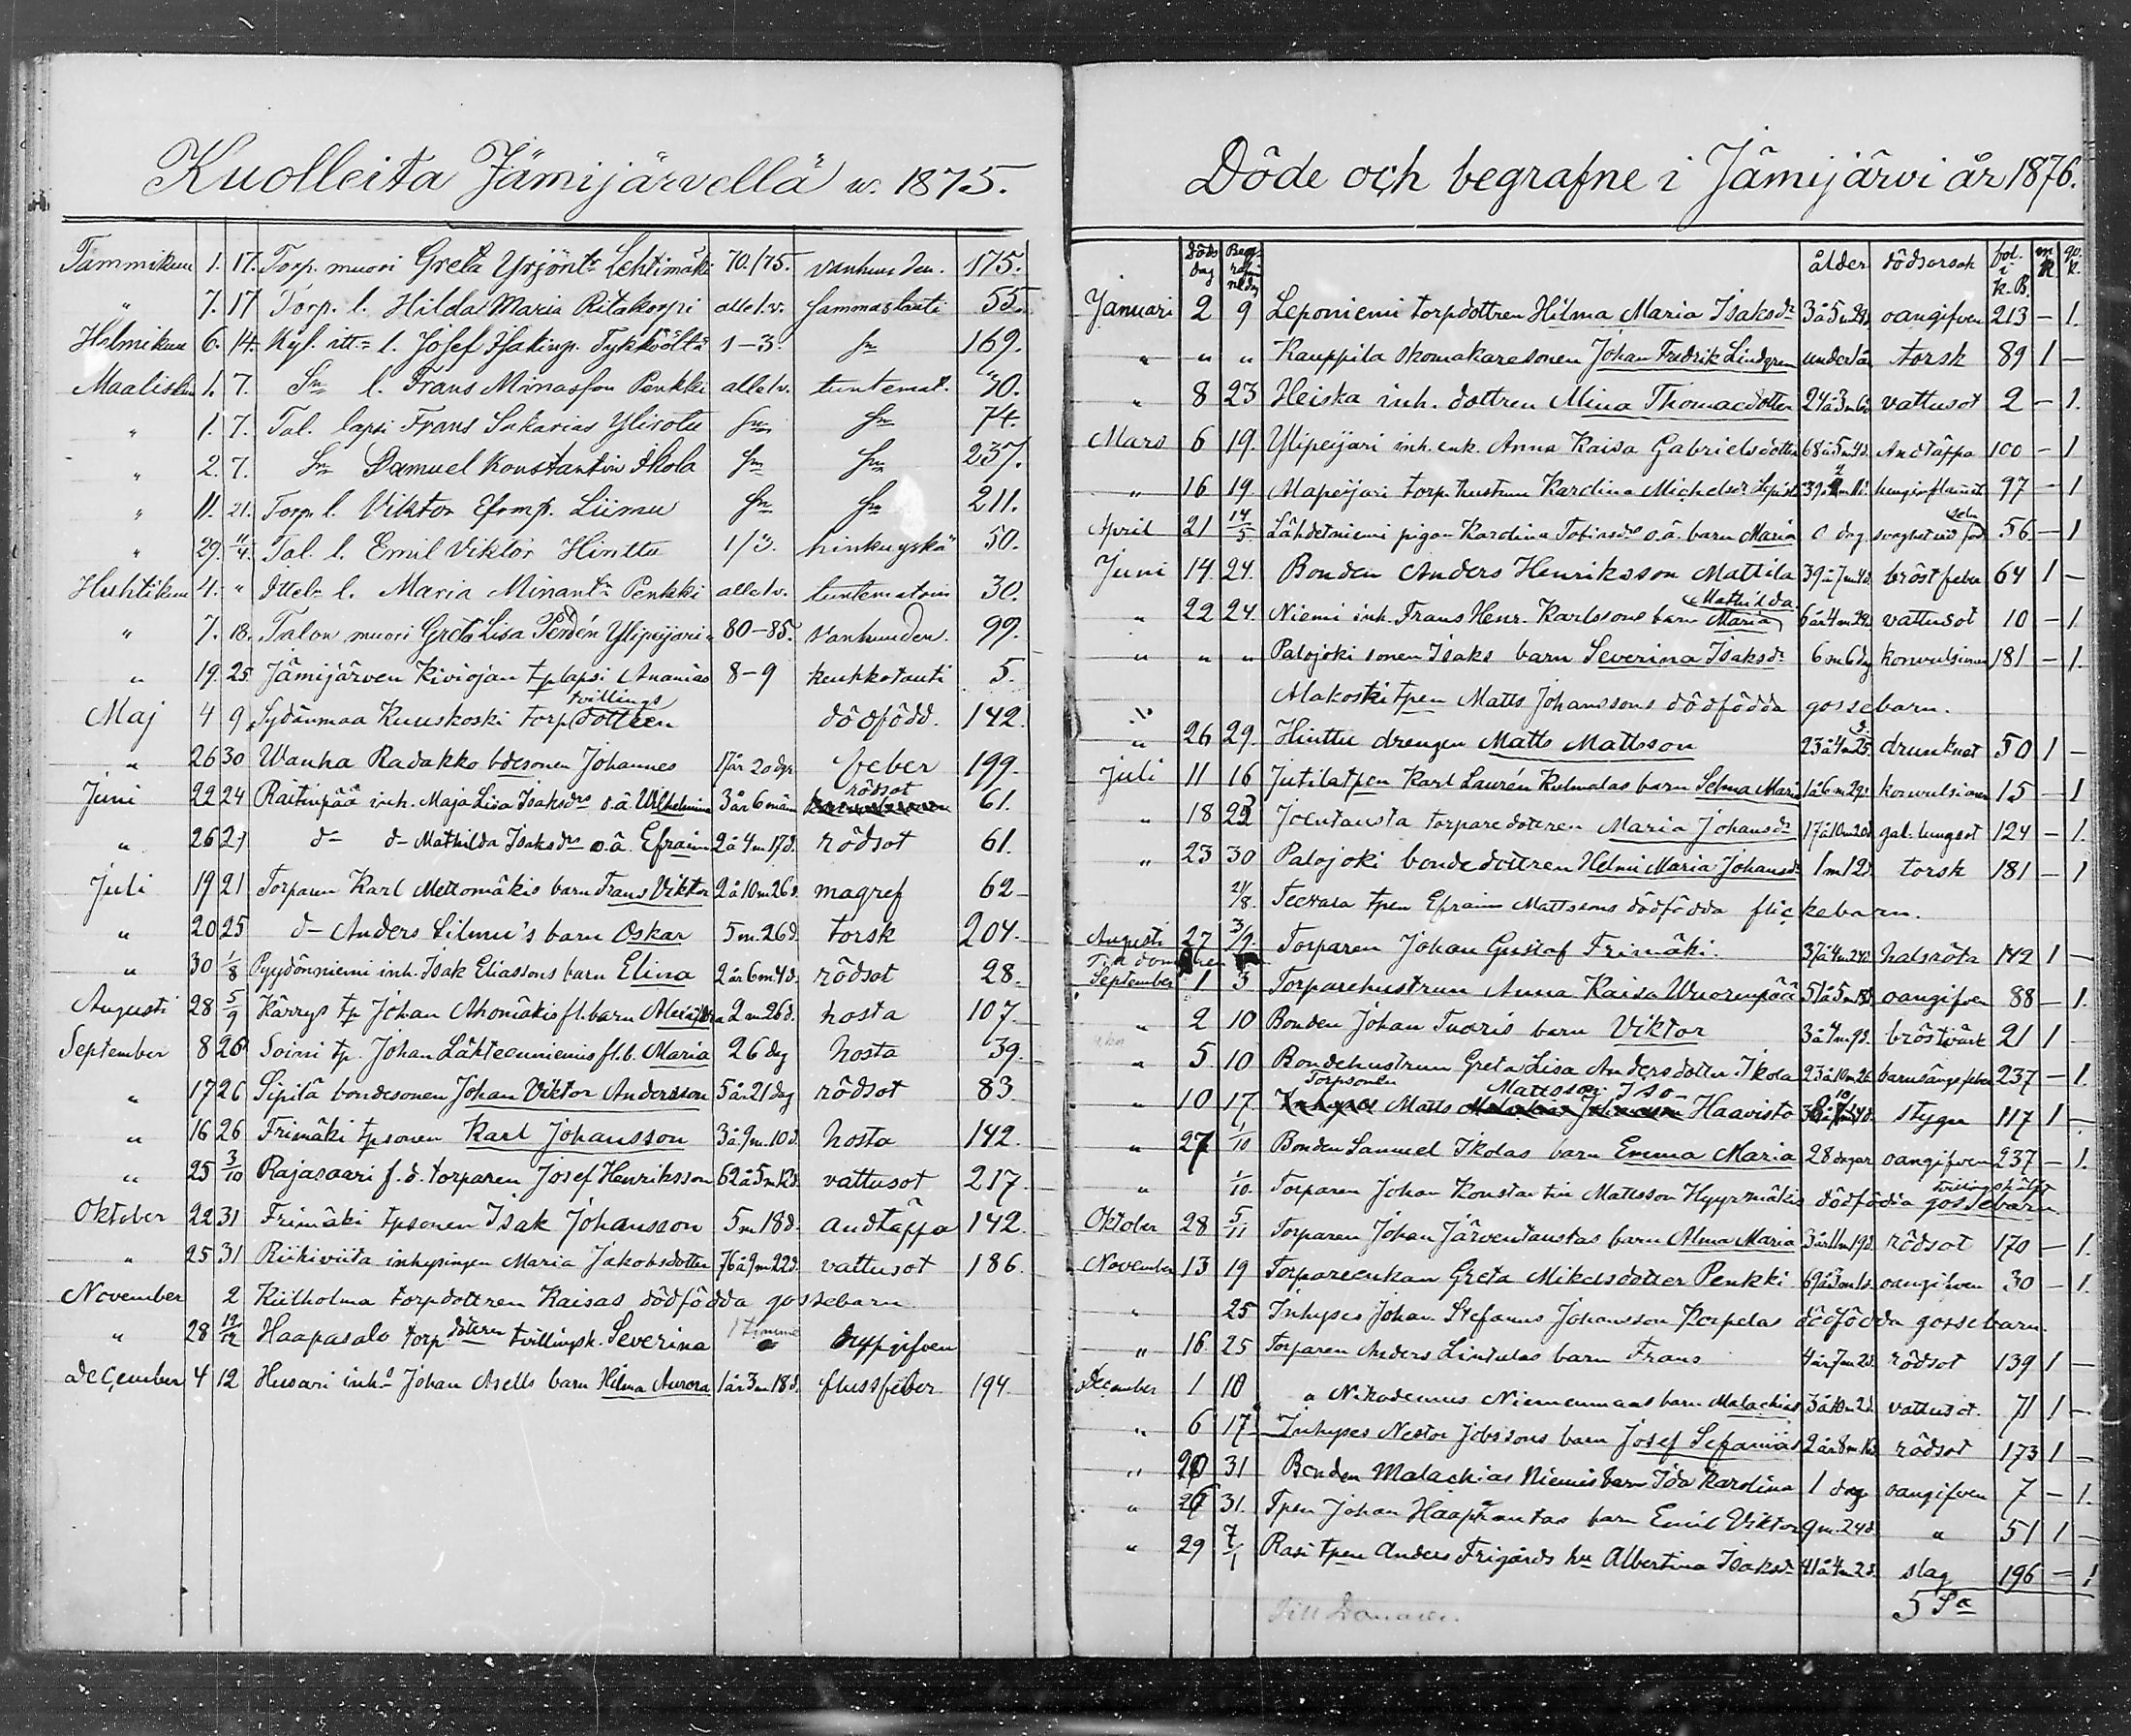 Kuolleita Jämijärvellä w. 1875.
Tammikuu 1. 17. Torp. muori Greta Yrjönt. Lehtimäki 70./75. vanhuuden. 175.
" 7. 17 Torp. l. Hilda Maria Ritakorpi alle 1 v. hammastauti 55.
Helmikuu 6. 14. Kyl. itt. l. Josef Isakinp. Tykköoltä 1-3. Sn 169.
Maalisku 1. 7. Sn l. Frans Minasson Penkki alle 1 v. tuntemat. 30.
" 1. 7. Tal. lapsi Frans Sakarias Ylirotu Sn Sn 74.
" 2. 7. Sn Samuel Konstantin Ikola Sn Sn 237.
" 11. 21. Torp. l. Viktor Efrmp. Liimu Sn Sn 211.
" 29. 11/4. Tal. l. Emil Viktor Hinttu 1/3. hinkuyskä 50.
Huhtikuu 4. " Ittel. l. Maria Minant. Penkki alle 1 v. tuntematoin 30.
" 7. 18. Talon muori Greta Lisa Perdén Ylipeijari 80-85. vanhuuden. 99.
" 19. 25. Jämijärven Kiviojan tp lapsi Ananias 8-9 keuhkotauti 5.
Maj 4 9 Sydänmaa Kuuskoski torp. tvillings dottren dödfödd. 142.
" 26 30 Wanha Radakko bdesonen Johannes 17 år 20 dgr feber 199.
Juni 22 24 Raitinpää inh. Maja Lisa Isaksdrs o.ä. Wilhelmina 3 år 6 mån rödsot 61.
" 26 27 d- d- Mathilda Isaksdrs o.ä. Efraim 2 å 4 m 17 d. rödsot 61.
Juli 19 21 Torparen Karl Mettomäkis barn Frans Viktor 2 å 10 m 26 d. magref 62
" 20 25 d- Anders Lilmu's barn Oskar 5 m. 26 d. torsk 204.
" 30 1/8 Pyydönniemi inh. Isak Eliassons barn Elina 2 år 6 m 4 d. rödsot 28.
Augusti 28 5/9 Kärrys tp Johan Ahomäkis fl. barn Alexandra 2 m 26 d. hosta 107.
September 8 26 Soini tp. Johan Läkteenniemis fl. b. Maria 26 dag hosta 39.
" 17 26 Sipilä bondesonen Johan Viktor Andersson 5 år 21 dag rödsot 83
" 16 26 Frimäki tpsonen Karl Johansson 3 å 9 m. 10 d. hosta 142.
" 25 3/10 Rajasaari f.d. torparen Josef Henriksson 62 å 5 m 12 d. vattusot 217.
Oktober 22 31 Frimäki tpsonen Isak Johansson 5 m 18 d. andtäppa 142.
" 25 31 Riikiviita inhysingen Maria Jakobsdotter 76 å 9 m 22 d. vattusot 186.
November 2 Kiilholma torpdottren Kaisas dödfödda gossebarn
" 28 12/12 Haapasalo torp. dotteren tvillingsk. Severina 1 timme ouppgifven
December 4 12 Husari inh. Johan Asells barn Hilma Aurora 1 år 3 m 18 d. flussfeber 194.
Döde och begrafne i Jämijärvi år 1876.
döds dag Begrafn dag ålder dödsorsak fol. i K.B. m K qv. K.
Januari 2 9 Leponiemi torpdottren Hilma Maria Isaksdr 3 å 5 m 28 d oangifven 213 - 1.
" " " Kauppila skomakaresonen Johan Fredrik Lindgren under 1 år torsk 89 1 -
" 8 23 Heiska inh. dottren Mina Thomasdotter 24 å 3 m 6 d vattusot 2 - 1.
Mars 6 19. Ylipeijari inh. enk. Anna Kaisa Gabrielsdotter 68 å 5 m 4 d. Andtäppa 100 - 1
" 16 19. Alapeijari torp. hustrun Karolina Michelsdr 97 - 1
April 21 14/5 Lähdetniemi pigan Karolina Tobiasdrs o.ä. barn Maria 0 dag svaghet vid 56 - 1
Juni 14. 24. Bonden Anders Henriksson Mattila 39 å 7 m 4 d bröstfeber 64 1 -
" 22 24. Niemi inh. Frans Henr. Karlssons barn Mathilda Maria 6 å 4 m 29 d. vattusot 10 - 1.
" " " Palojoki sonen Isaks barn Severina Isaksdr 6 m 6 dg konvulsioner 181 - 1.
Alakoski tpen Matts Johanssons dödfödda gossebarn.
" 26 29. Hinttu drengen Matts Mattsson 23 å 4 m 25 d. drunknat 50 1 -
Juli 11 16 Jutila tpen Karl Laurén Kulmalas barn Selma Maria 1 å 6 m 29 d. konvulsioner 15 - 1
" 18 23 Joentausta torparedottren Maria Johansdr 17 å 10 m 20 d gal. lungsot 124 - 1.
" 23 30 Palojoki bondedottren Helmi Maria Johansdr 1 m 12 d. torsk 181 - 1
21/8. tpen Efraim Mattssons dödfödda flickebarn.
Augusti 27 3/9. Torparen Johan Gustaf Frimäki. 37 å 4 m 24 d halsröta 142 1 -
September 1 3 Torparehustrun Anna Kaisa Wuorenpää 51 å 5 m 18 d. oangifven 88 - 1.
" 2 10 Bonden Johan Tuoris barn Viktor 3 å 4 m 9 d. bröstvärk 21 1
" 5. 10 Bondehustrun Greta Lisa Andersdotter Ikola 23 å 10 m 26 barnsängsfeber 237 - 1.
" 10 17 Torpsonen Matts Mattsson Iso- Haavisto stygn 117 1 -
" 27 1/10 Bonden Samuel Ikolas barn Emma Maria 28 dagar oangifven 237 - 1.
" 1/10. Torparen Johan Konstantin Mattsson Hyyrmäkis dödfödda gossebarn
Oktober 28 5/11 Torparen Johan Järventaustas barn Alma Maria 3 år 11 m 19 d. rödsot 170 - 1.
November 13 19 Torpareenkan Greta Mikelsdotter Penkki 69 å 3 m 1 d. oangifven 30 - 1.
" 25 Inhyses Johan Stefanus Johansson Korpelas dödfödda gossebarn.
" 16. 25 Torparen Anders Lintulas barn Frans 4 år 7 m 2 d. rödsot 139 1 -
December 1 10 " Nikodemus Niemenmaas barn Malachias 3 å 10 m 2 d. vattusot. 71 1 -
" 6 17 Inhyses Nestor Jobssons barn Josef Sefanias 2 år 8 m rödsot 173 1 -
" 20 31 Bonden Malachias Niemis barn Ida Karolina 1 dag oangifven 7 - 1.
" 26 31. Tpen Johan barn Emil Viktor 9 m. 24 d. " 51 1 -
" 29 7/1 Rasi tpen Anders Frigårds hu Albertina Isaksdr 41 å 4 m 2 d. slag 196 - 1
Till Domaren.